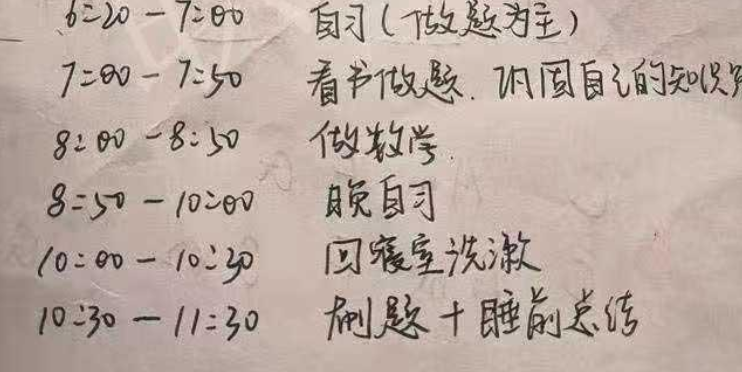 6:20 - 7:00 自习(做题为主)
7:00 - 7:50 看书做题.巩固自己的知识
8:00 - 8:50 做数学.
8:50 - 10:00 晚自习
10:00 - 10:30 回寝室洗漱
10:30 - 11:30 刷题+睡前总结